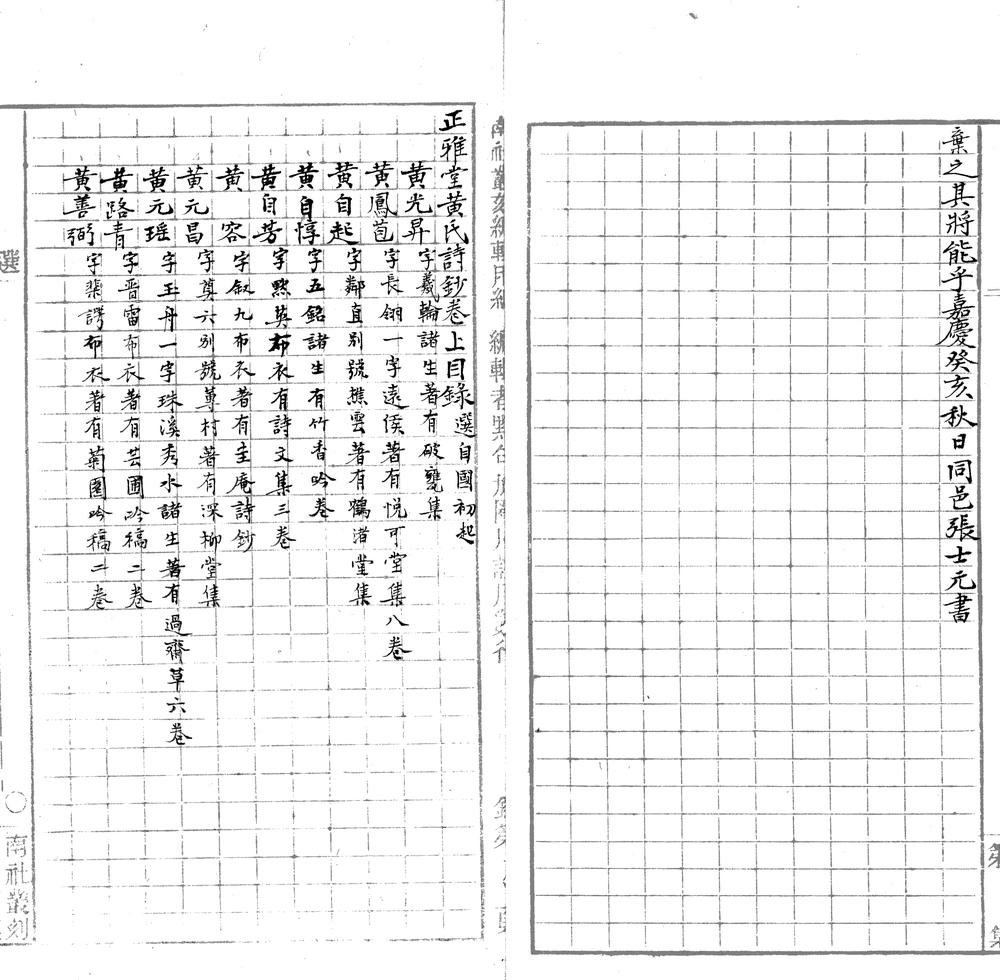 棄之其將能乎嘉慶癸亥秋日同邑張士元書
正雅堂黃氏詩鈔卷上目錄選自國初起
黃光昇字羲輪諸生著有破甕集
黃鳳苞字長翎一字遠侯著有悅可堂集八卷
黃自起字鄰直別號樵雲著有鶴渚堂集
黃自惇字五銘諸生有竹香吟卷
黃自芳字默英布衣有詩文集三卷
黃容字叙九布衣著有圭庵詩鈔
黃元昌字尊六別號蓴村著有深柳堂集
黃元瑶字玉丹一字珠溪秀水諸生著有過齋草六卷
黃路青字晋雷布衣著有芸圃吟稿二卷
黃善弼字棐諤布衣著有菊園吟稿二卷
選
南社叢刻
第
集